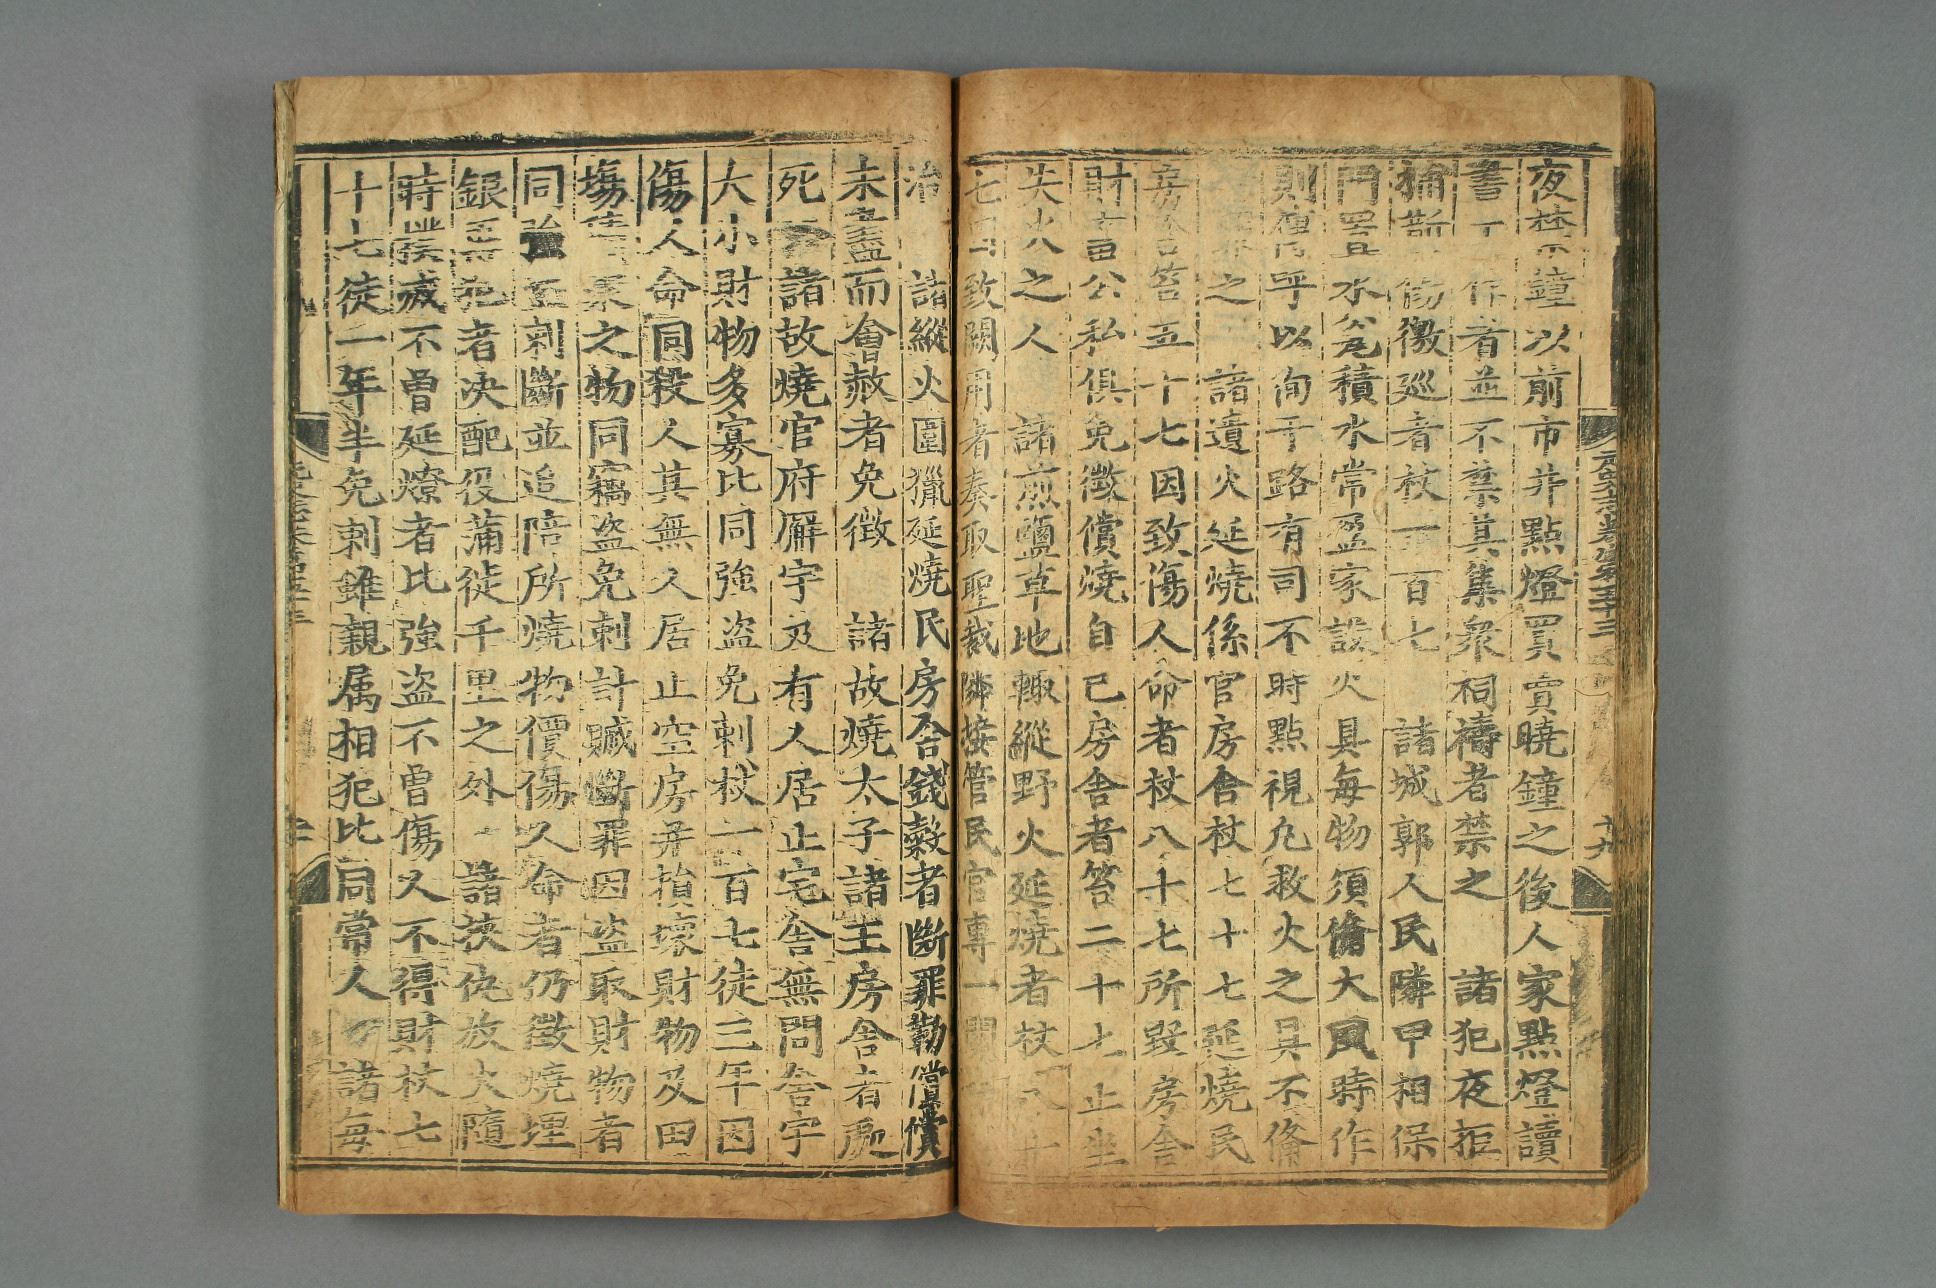 夜禁鐘以前市井點燈買賣曉鐘之後人家點燈讀
書工作者並不禁其集衆祠禱者禁之　諸犯夜拒
捕斮傷徼巡者杖一百七　諸城郭人民隣甲相保
門置水瓮積水常盈家設火具每物須備大風時作
則傳呼以徇于路有司不時點視凡救火之具不備
之　諸遺火延燒係官房舍杖七十七延燒民
房舍笞五十七因致傷人命者杖八十七所毀房舍
財畜公私俱免徵償燒自己房舍者笞二十七止坐
失火之人　諸煎鹽草地輒縱野火延燒者杖八十
七因致闕用者奏取聖裁隣接管民官專一關
元史志卷第五十三　十九
治　諸縱火圍獵延燒民房舍錢穀者斷罪勒償償
未盡而會赦者免徵　諸故燒太子諸王房舍者處
死　諸故燒官府廨宇及有人居止宅舍無問舍宇
大小財物多寡比同強盗免刺杖一百七徒三年因
傷人命同殺人其無人居止空房并損壞財物及田
場積聚之物同竊盗免刺計贓斷罪因盗取財物者
同強盗刺斷並追陪所燒物價傷人命者仍徵燒埋
銀再犯者决配役滿徙千里之外　諸挾仇放火隨
時撲滅不曾延燎者比強盗不曾傷人不得財杖七
十七徒一年半免刺雖親属相犯比同常人　諸每